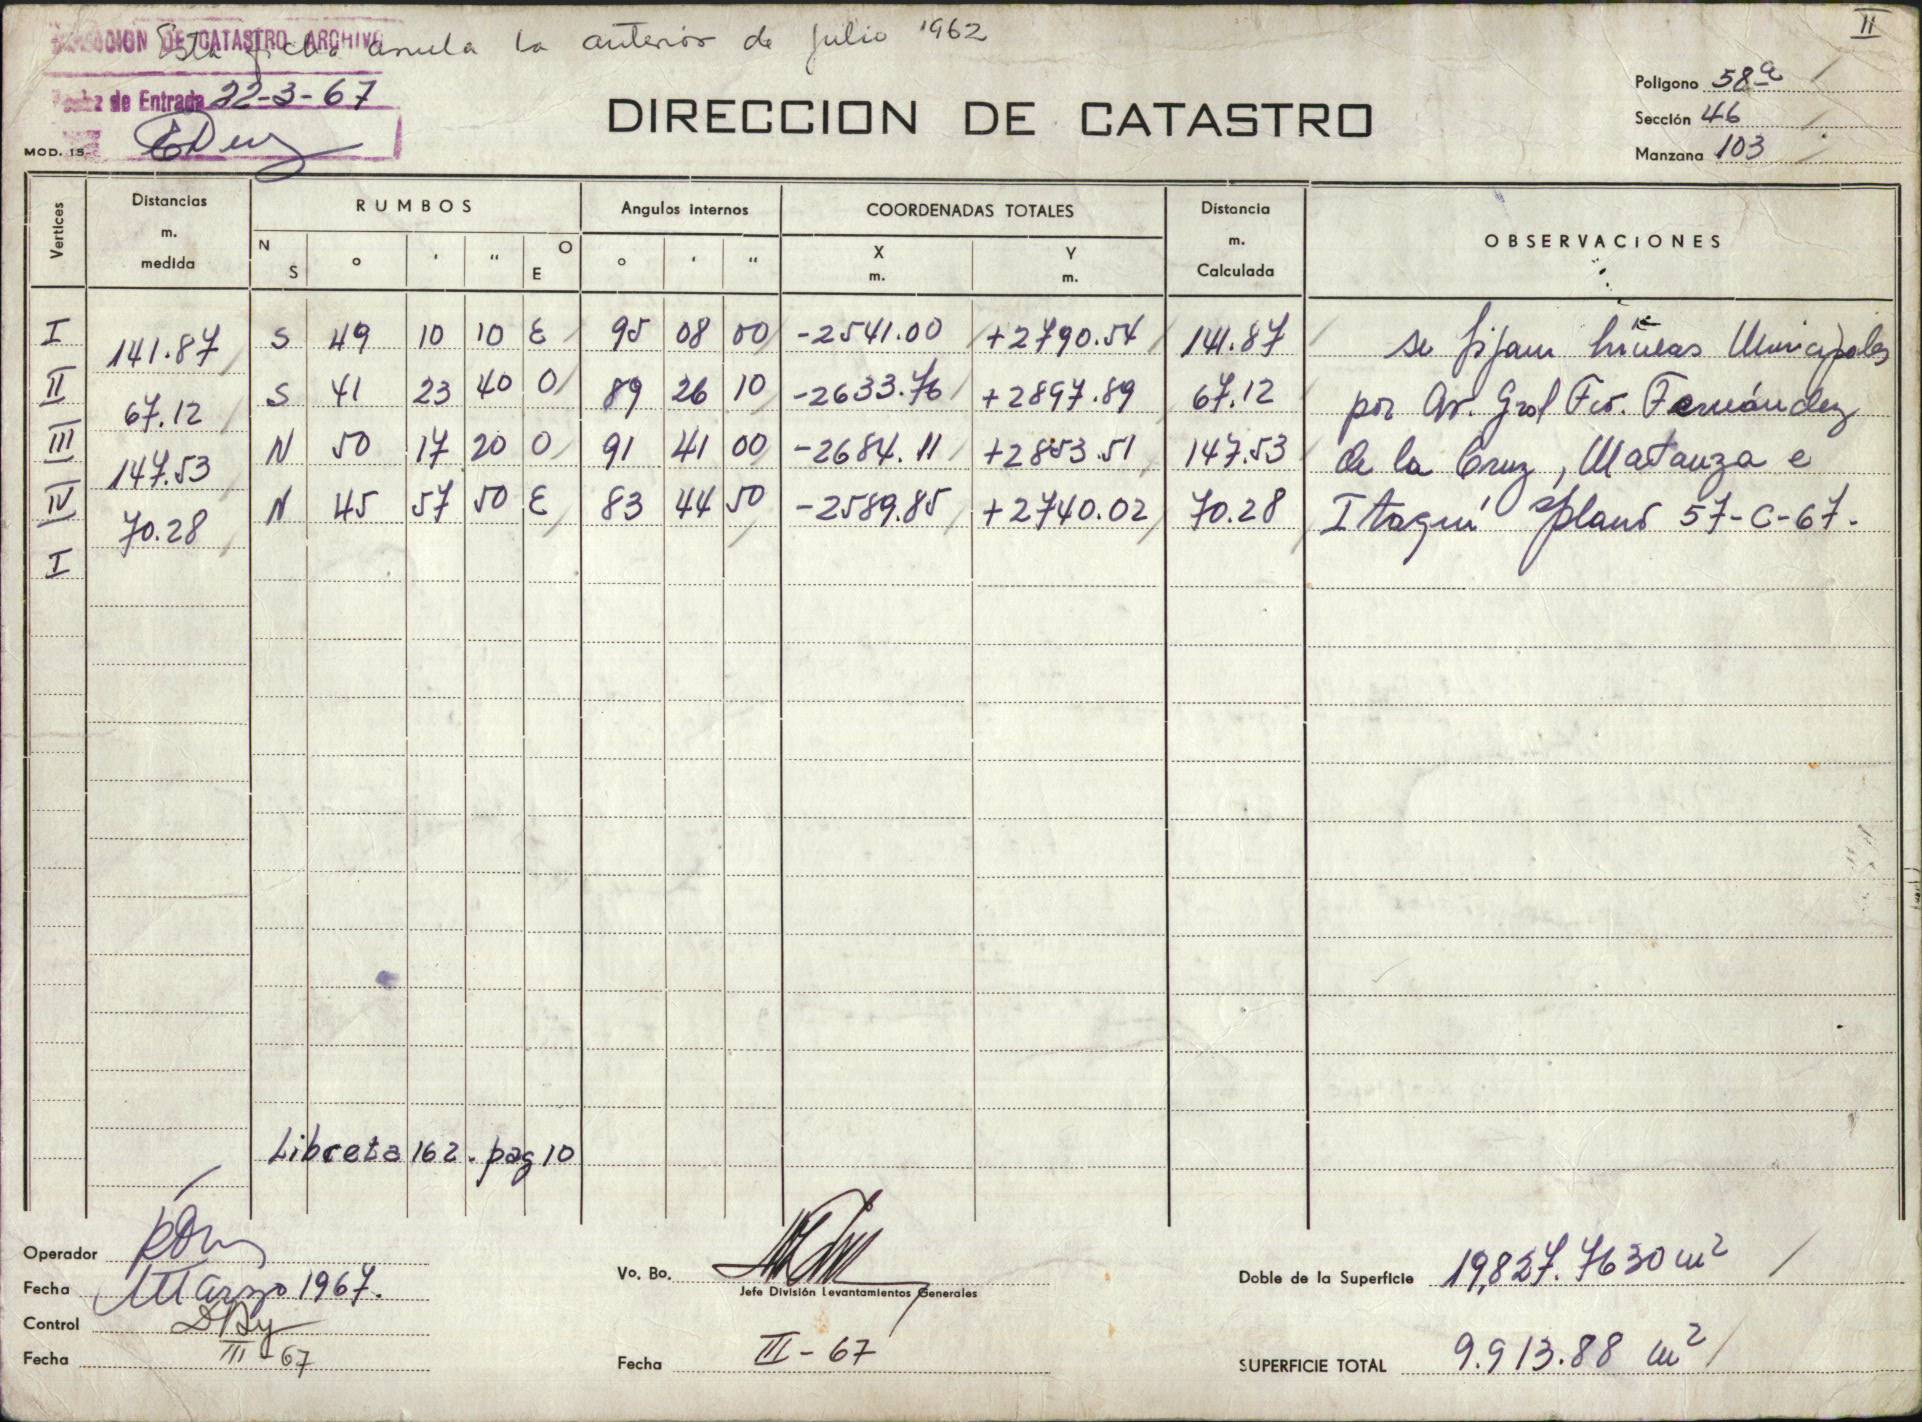 Esta ficha anula la anterior de Julio 1962
II
DIRECCION DE CATASTRO ARCHIVO
de Entrada 22-3-67
MOD. 15-
DIRECCION DE CATASTRO
Poligono 58a
Sección 46
Manzana 103
Vertices Distancias m. medida RUMBOS Angulos internos COORDENADAS TOTALES Distancia m. Calculada OBSERVACIONES
N S ° ' " O E ° ' " X m. Y m.
I 141.87 S 49 10 10 E 95 08 00 -2541.00 +2790.54 141.87 se fijan lineas Municipales
II 67.12 S 41 23 40 O 89 26 10 -2633.76 +2897.89 67.12 por Av. Gral Fco. Fernández
III 147.53 N 50 17 20 O 91 41 00 -2684.11 +2853.51 147.53 de la Cruz, Matanza e
IV 70.28 N 45 57 50 E 83 44 50 -2589.85 +2740.02 70.28 Itaquí s/plano 57-C-67.
I
Libreta 162. pag 10
Operador
Fecha Marzo 1967.
Control
Fecha III-67
Vo. Bo.
Jefe División Levantamientos Generales
Fecha III-67
Doble de la Superficie 19,827.7630 m2
SUPERFICIE TOTAL 9.913.88 m2